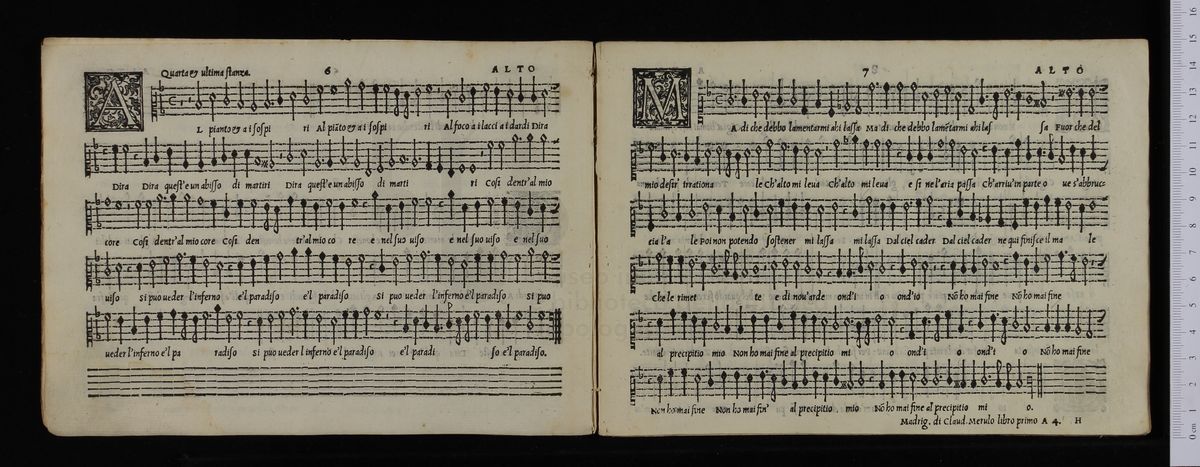 Quarta & ultima stanza. 6 ALTO
A
L pianto & a i sospi ri Al piãto & a i sospi ri Al foco a i lacci a i dardi Dira
Dira Dira quest'e un abisso di martiri Dira quest'e un abisso di marti ri Cosi dentr'al mio
core Cosi dentr'al mio core Cosi den tr'al mio co re e nel suo uiso e nel suo uiso e nel suo
uiso si puo ueder l'inferno e'l paradiso e'l paradiso si puo ueder l'inferno e'l paradiso si puo
ueder l'inferno e'l pa radiso si puo ueder l inferno e'l paradiso e'l paradi so e'l paradiso.
7 ALTO
M
A di che debbo lamentarmi ahi lassa Ma di che debbo lamẽtarmi ahi las sa Fuor che del
mio desir' irrationa le Ch'alto mi leua Ch'alto mi leua e si ne l'aria passa Ch'arriu'in parte o ue s'abbruc
cia l'a le Poi non potendo sostener mi lassa mi lassa Dal ciel cader Dal ciel cader ne qui finisce il ma le
Che le rimet te e di nou'arde ond'i o ond'io Nõ ho mai fine Nõ ho mai fine
al precipitio mio Non ho mai fine al precipitio mi o ond'i o ond'i o Nõ ho mai fine
Non ho mai fine Non ho mai fin' al precipitio mio Nõ ho mai fine al precipitio mi o.
Madrig. di Claud. Merulo libro primo A 4. H
0 cm 1 2 3 4 5 6 7 8 9 10 11 12 13 14 15 16